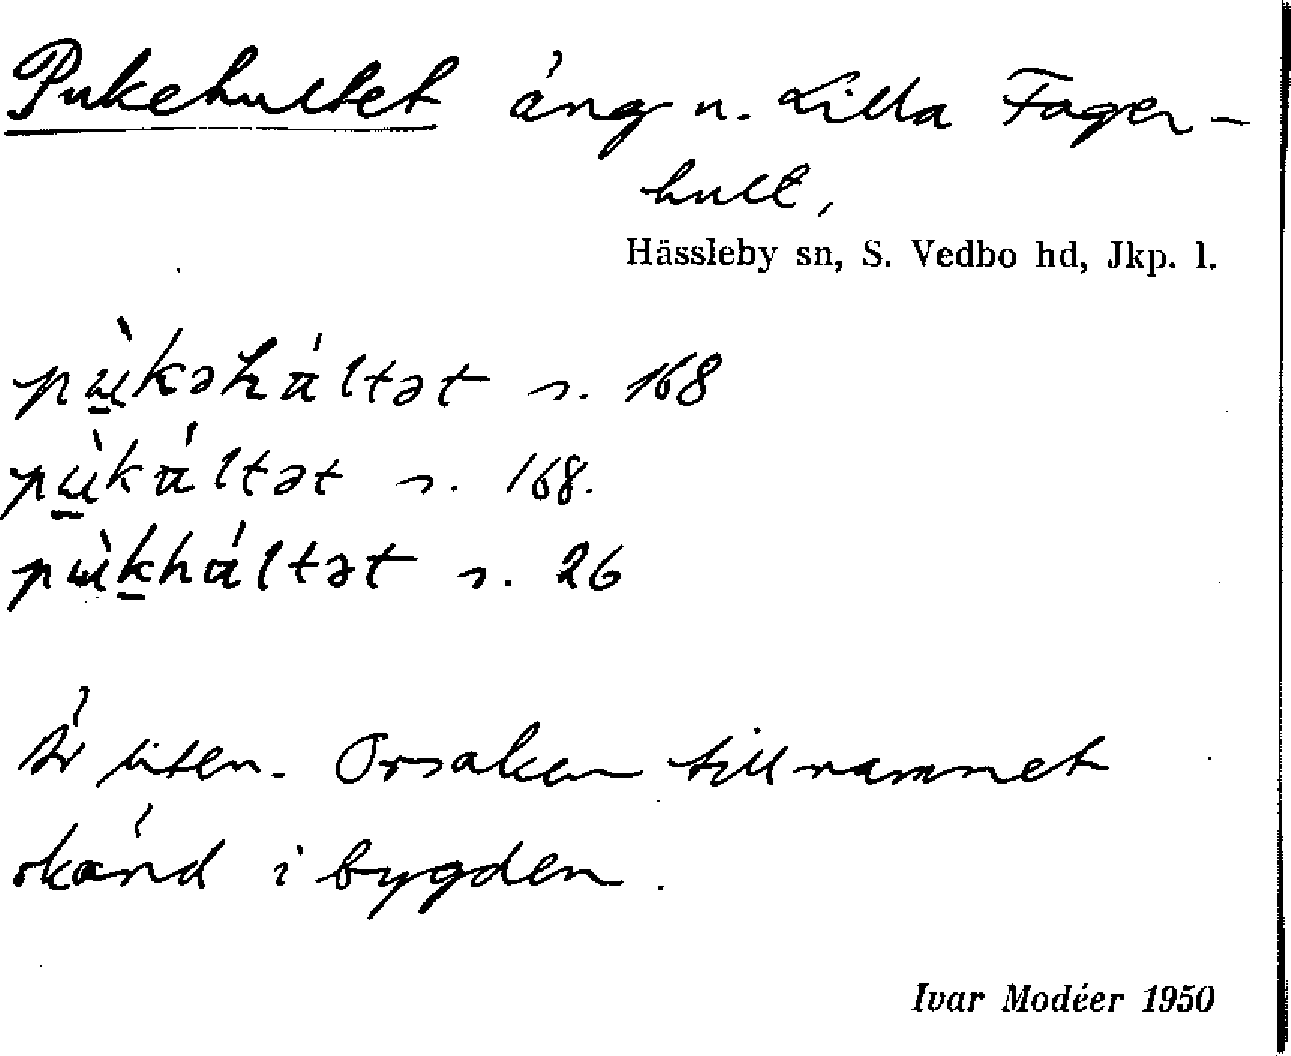 Pukehultet äng n. Lilla Fager-
hult,
Hässleby sn, S. Vedbo hd, Jkp. l.
pùkəháltət s. 168
pùkáltət s. 168.
pùkháltət s. 26
Är liten. Orsaken till namnet
okänd i bygden.
Ivar Modéer 1950